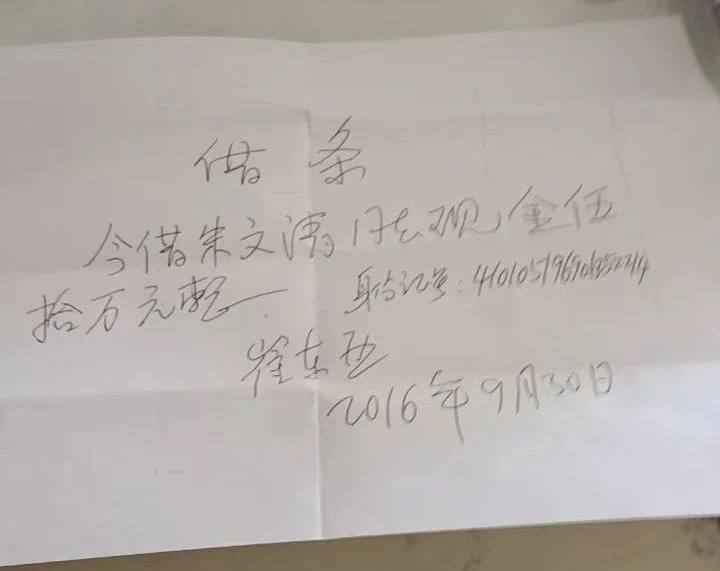 借条
今借朱文涛同志现金伍
拾万元整
身份证号：
崔东亚
2016年9月30日